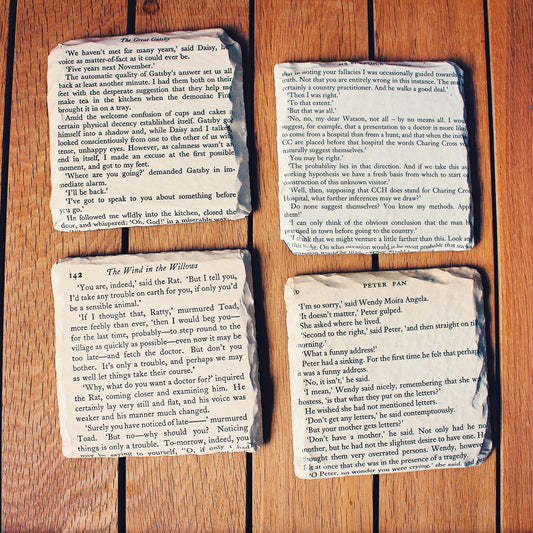 The Great Gatsby
'We haven't met for many years,' said Daisy, her
voice as matter-of-fact as it could ever be.
'Five years next November.'
The automatic quality of Gatsby's answer set us all
back at least another minute. I had them both on their
feet with the desperate suggestion that they help me
make tea in the kitchen when the demoniac Finn
brought it in on a tray.
Amid the welcome confusion of cups and cakes a
certain physical decency established itself. Gatsby got
himself into a shadow and, while Daisy and I talked,
looked conscientiously from one to the other of us with
tense, unhappy eyes. However, as calmness wasn't an
end in itself, I made an excuse at the first possible
moment, and got to my feet.
'Where are you going?' demanded Gatsby in im-
mediate alarm.
'I'll be back.'
'I've got to speak to you about something before
you go.'
He followed me wildly into the kitchen, closed the
door, and whispered: 'Oh, God!' in a miserable way.
that in noting your fallacies I was occasionally guided towards
truth. Not that you are entirely wrong in this instance. The man
certainly a country practitioner. And he walks a good deal.'
'Then I was right.'
'To that extent.'
'But that was all.'
'No, no, my dear Watson, not all – by no means all. I would
suggest, for example, that a presentation to a doctor is more likely
to come from a hospital than from a hunt, and that when the initials
CC are placed before that hospital the words Charing Cross
naturally suggest themselves.'
'You may be right.'
'The probability lies in that direction. And if we take this as
working hypothesis we have a fresh basis from which to start our
construction of this unknown visitor.'
'Well, then, supposing that CCH does stand for Charing Cross
Hospital, what further inferences may we draw?'
'Do none suggest themselves? You know my methods. Apply
them!'
'I can only think of the obvious conclusion that the man has
practised in town before going to the country.'
'I think that we might venture a little farther than this. Look at
142 The Wind in the Willows
'You are, indeed,' said the Rat. 'But I tell you,
I'd take any trouble on earth for you, if only you'd
be a sensible animal.'
'If I thought that, Ratty,' murmured Toad,
more feebly than ever, 'then I would beg you—
for the last time, probably—to step round to the
village as quickly as possible—even now it may be
too late—and fetch the doctor. But don't you
bother. It's only a trouble, and perhaps we may
as well let things take their course.'
'Why, what do you want a doctor for?' inquired
the Rat, coming closer and examining him. He
certainly lay very still and flat, and his voice was
weaker and his manner much changed.
'Surely you have noticed of late—' murmured
Toad. 'But no—why should you? Noticing
things is only a trouble. To-morrow, indeed, you
may be saying to yourself, "O, if only I had
PETER PAN
'I'm so sorry,' said Wendy Moira Angela.
'It doesn't matter,' Peter gulped.
She asked where he lived.
'Second to the right,' said Peter, 'and then straight on till
morning.'
'What a funny address!'
Peter had a sinking. For the first time he felt that perhaps
it was a funny address.
'No, it isn't,' he said.
'I mean,' Wendy said nicely, remembering that she was
hostess, 'is that what they put on the letters?'
He wished she had not mentioned letters.
'Don't get any letters,' he said contemptuously.
'But your mother gets letters?'
'Don't have a mother,' he said. Not only had he no
mother, but he had not the slightest desire to have one. He
thought them very overrated persons. Wendy, however,
felt at once that she was in the presence of a tragedy.
'O Peter, no wonder you were crying,' she said, and